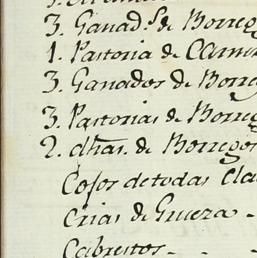 3. Ganad.s de Borreg
1. Pastoria de Carne
3. Ganados de Borre
3. Pastorias de Borreg
2. dhas. de Borregos
Cosos de todas cla
Crias de Grueza -
Cabrestos - -